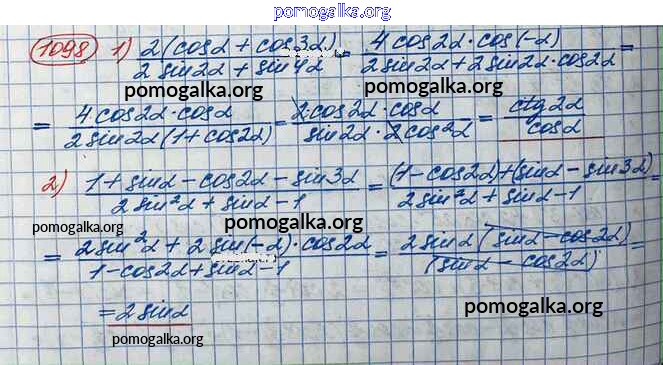 pomogalka.org
1098 1) 2(cosα + cos3α) / 2sin2α + sin4α = 4cos2α·cos(-α) / 2sin2α + 2sin2α·cos2α =
pomogalka.org pomogalka.org
= 4cos2α·cosα / 2sin2α(1+cos2α) = 2cos2α·cosα / sin2α·2cos²α = ctg2α / cosα
pomogalka.org pomogalka.org
2) 1+sinα-cos2α-sin3α / 2sin²α+sinα-1 = (1-cos2α)+(sinα-sin3α) / 2sin²α+sinα-1 =
pomogalka.org pomogalka.org
= 2sin²α + 2sin(-α)·cos2α / 1-cos2α+sinα-1 = 2sinα(sinα-cos2α) / (sinα-cos2α) =
= 2sinα
pomogalka.org
pomogalka.org